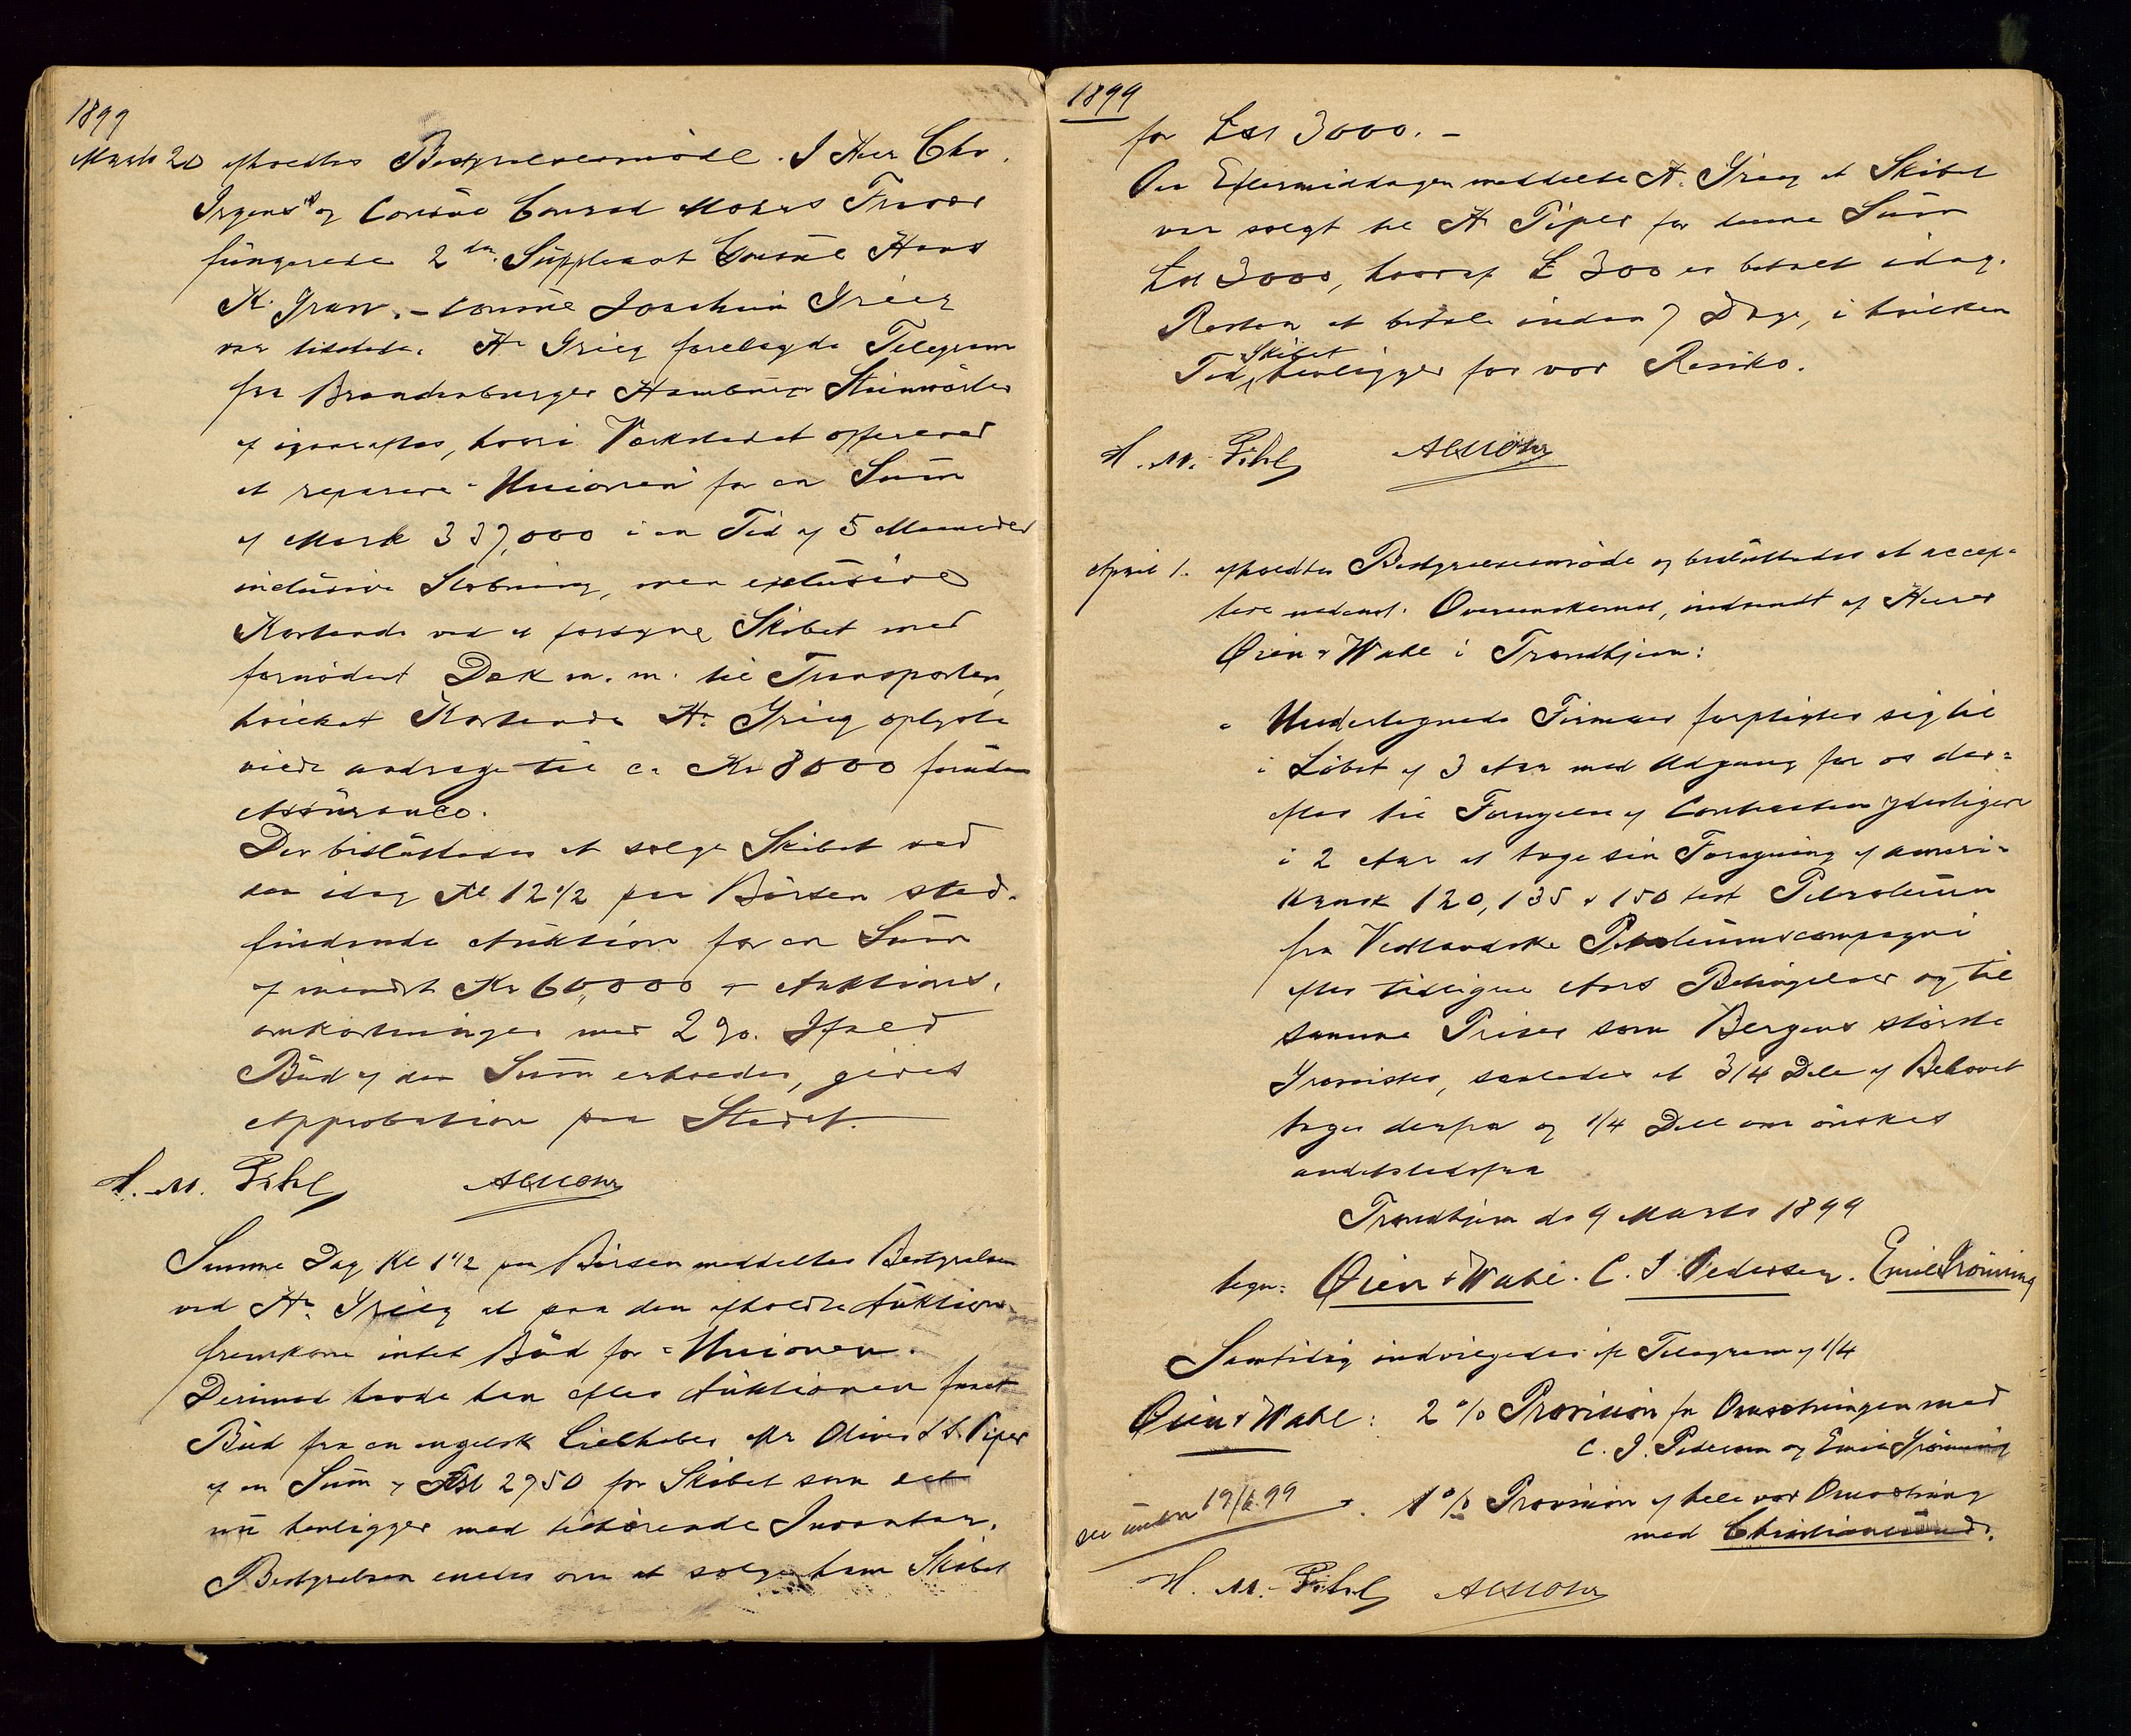 1899
Marts 20 afholdtes Bestyrelsesmöde. I Herr Chr.
Irgens's og Consül Conrad Mohrs Fravær
füngerede 2den Süppleant Consül Hans
K. Gran. – Consül Joachim Grieg
var tilstede. Hr Grieg forelagde Telegram
fra Brandenburger Hambürg Steinwärder
af igaaraftes, hvori Værkstedet offererer
at reparere "Unionen" for en Süm
af Mark 337,000 i en Tid af 5 Maaneder
inclüsive Slæbning, men exclüsive
Kostende ved at forsyne Skibet med
fornödent Dæk m. m. til Transporten,
hvilket Kostende Hr. Grieg oplyste
vilde andrage til ca Kr 8000 foruden
Assürance.
Der beslüttedes at sælge Skibet ved
den idag Kl 12 1/2 paa Börsen sted-
findende Auktion for en Süm
af mindst Kr 60,000 ÷ Auktions-
omkostninger med 2%. Ifald
Büd af den Süm erholdes, gives
Approbation paa Stedet.
H. M. Fihl   ACMohr
Samme Dag Kl 1 1/2 paa Börsen meddeltes Bestyrelsen
ved Hr. Grieg at paa den afholdte Auktion
fremkom intet Büd for "Unionen".
Derimod havde han efter Auktionen faaet
Büd fra en engelsk Liebhaber Mr Oliver Piper
af en Süm af £st 2750 for Skibet som det
nü henligger med tilhörende Inventar.
Bestyrelsen enedes om at sælge ham Skibet
1899
for £st 3000. –
Om Eftermiddagen meddelte Hr. Grieg at Skibet
var solgt til Hr Piper for denne Süm
£st 3000, hvoraf £ 300 er betalt idag.
Resten at betale inden 7 Dage, i hvilken
Skibet
Tid henligger for vor Risiko.
H. M. Fihl   ACMohr
April 1. afholdtes Bestyrelsesmöde og beslüttedes at accep-
tere nedenst. Overenskomst, indsendt af Herrer
Öien & Wahl i Trondhjem:
" Undertegnede Firmaer forpligter sig til
i Löbet af 3 Aar med Adgang for os der-
efter til Fornyelse af Contracten yderligere
i 2 Aar at tage sin Forsyning af ameri-
kansk 120, 135 & 150 test Petroleüm
fra Vestlandske Petroleümscompagni
efter tidligere Aars Betingelser og til
samme Priser som Bergens störste
Grossister, saaledes at 3/4 Dele af Behovet
tages derfra og 1/4 Del om önskes
andetstedsfra
Trondhjem de 9 Marts 1899
tegn: Öien & Wahl. C. J. Pedersen. Emil Gröning
Samtidig indvilgedes if. Telegram af 1/4
Öien & Wahl: 2 % Provision for Omsætningen med
C. J. Pedersen og Emil Gröning
see ünder 19/6 99   1 % Provision af hele vor Omsætning
med Christianssünd.
H. M. Fihl   ACMohr